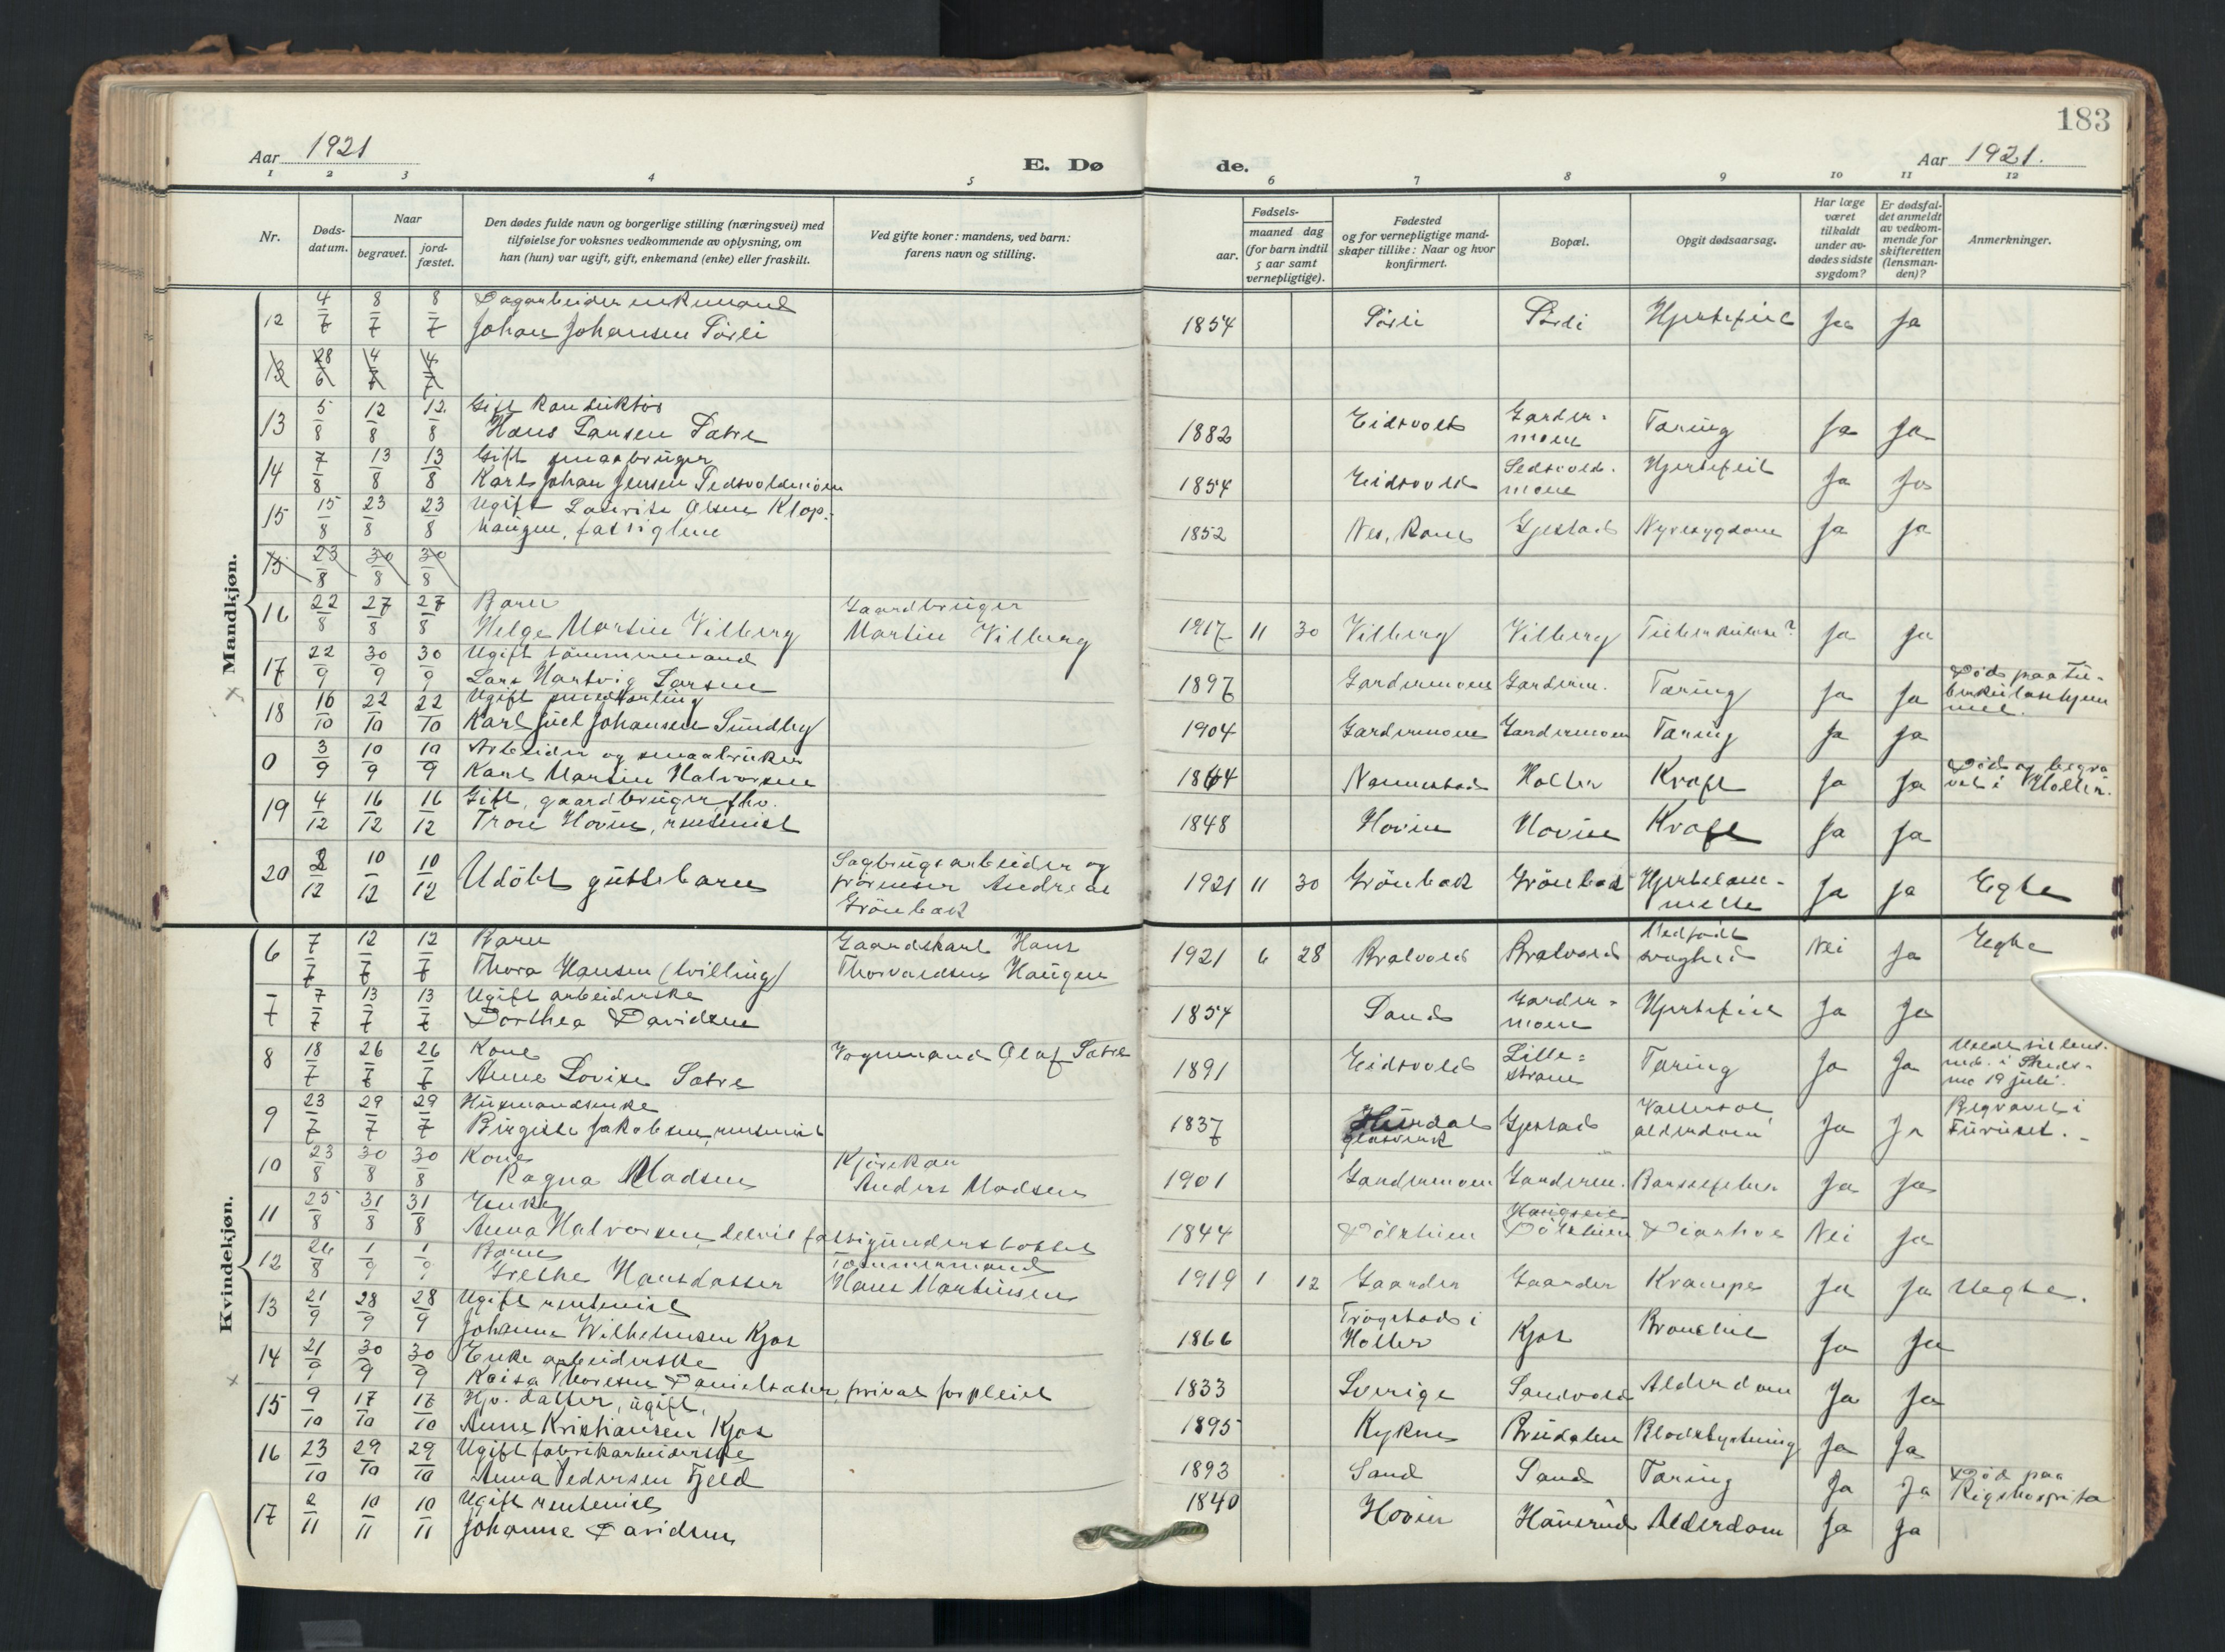 183
Aar 1921
E. Døde.
Aar 1921.
1 2 3 4 5 6 7 8 9 10 11 12
Nr.
Døds-datum.
Naar
begravet.
jord-fæstet.
Den dødes fulde navn og borgerlige stilling (næringsvei) med
tilføielse for voksnes vedkommende av oplysning, om
han (hun) var ugift, gift, enkemand (enke) eller fraskilt.
Ved gifte koner: mandens, ved barn:
farens navn og stilling.
Fødsels-
aar. maaned dag
(for barn indtil
5 aar samt
vernepligtige).
Fødested
og for vernepligtige mand-
skaper tillike: Naar og hvor
konfirmert.
Bopæl.
Opgit dødsaarsag.
Har læge
været
tilkaldt
under av-
dødes sidste
sygdom?
Er dødsfal-
det anmeldt
av vedkom-
mende for
skifteretten
(lensman-
den)?
Anmerkninger.
Mandkjøn.
12 4/7 8/7 8/7 Dagarbeider enkemand
Johan Johansen Sörli 1854 Sörli Sördi Hjertefeil Ja Ja
13 28/6 4/7 4/7
13 5/8 12/8 12/8 Gift konduktör
Hans Larsen Sætre 1882 Eidsvold Garder-
moen Tæring Ja Ja
14 7/8 13/8 13/8 Gift smaabruger
Karl Johan Jensen Sedsvoldmoen 1854 Eidsvold Sedsvold-
moen Hjertefeil Ja Ja
15 15/8 23/8 23/8 Ugift Laurits Olsen Klop-
haugen, fattiglem 1852 Nes, Rom. Gjestad Nyresygdom Ja Ja
15 23/8 30/8 30/8
16 22/8 27/8 27/8 Barn
Helge Martin Vilberg Gaardbruger
Martin Vilberg 1917 11 30 Vilberg Vilberg Tuberkulose? Ja Ja
17 22/9 30/9 30/9 Ugift tömmermand
Lars Hartvig Larsen 1897 Gardermoen Garderm. Tæring Ja Ja Död paa Tu-
berkulosehjem
met.
18 16/10 22/10 22/10 Ugift smedlærling
Karl Juel Johansen Sundby 1904 Gardermoen Gardermoen Tæring Ja Ja
0 3/9 10/9 10/9 Arbeider og smaabruker
Karl Martin Halvorsen 1864 Nannestad Holter Kræft Ja Ja Död og begra
vet i Holter.
19 4/12 16/12 16/12 Gift, gaardbruger, fhv.
Tron Hovin, rentenist 1848 Hovin Hovin Kræft Ja Ja
20 2/12 10/12 10/12 Udöbt guttebarn Sagbrugsarbeider og
Andreas
Grönbæk 1921 11 30 Grönbæk Grönbæk Hjertelam-
melse Ja Ja Egte
Kvindekjøn.
6 7/7 12/7 12/7 Barn
Thora Hansen (tvilling) Gaardskarl Hans
Thorvaldsen Haugen 1921 6 28 Bralvold Bralvold Medfödt
svaghed Nei Ja Uegte
7 7/7 13/7 13/7 Ugift arbeiderske
Dorthea Davidsen 1854 Sand Garder-
moen Hjertefeil Ja Ja
8 18/7 26/7 26/7 Kone
Anne Lovise Sætre Vognmand Olaf Sætre 1891 Eidsvold Lille-
ström Tæring Ja Ja Meldt til lens-
md. i Skeds-
mo 19 juli.
9 23/7 29/7 29/7 Husmandsenke
Birgitte Jakobsen, rentenist 1837 Hurdal
glasverk Gjestad Vattersot
alderdom Ja Ja Begravet i
Furuset.
10 23/8 30/8 30/8 Kone
Ragna Madsen Kjörekar
Anders Madsen 1901 Gardermoen Garderm. Barselfeber Ja Ja
11 25/8 31/8 31/8 Enke
Anna Halvorsen, delvis fattigunderstöttet 1844 Dölehien Haugseie
Dölehien Diarhoe Nei Ja
12 26/8 1/9 1/9 Barn
Grethe Hansdatter Tömmermand
Hans Martinsen 1919 1 12 Gaarder Gaarder Krampe Ja Ja Uegte.
13 21/9 28/9 28/9 Ugift rentenist
Johanne Wilhelmsen Kjos 1866 Trögstad i
Holter Kjos Bronchit Ja Ja
14 21/9 30/9 30/9 Enke arbeiderske
Kaisa Thoresen Danielsæter, privat forpleiet 1833 Sverige Sandvold Alderdom Ja Ja
15 9/10 17/10 17/10 Hjv. datter, ugift,
Anne Kristiansen Kjos 1895 Kykne Brudalen Blodstyrtning Ja Ja
16 23/10 29/10 29/10 Ugift fabrikarbeiderske
Anna Pedersen Fjeld 1893 Sand Sand Tæring Ja Ja Död paa
Rigshospita
17 2/11 10/11 10/11 Ugift rentenist
Johanne Davidsen 1840 Hovin Haverud Alderdom Ja Ja